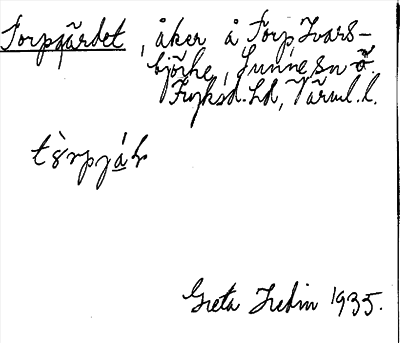 Torpgärdet, åker å Torp, Ivars-
björke, Sunne sn ö.
Fryksd. hd, Värml. l.
Greta Hedin 1935.